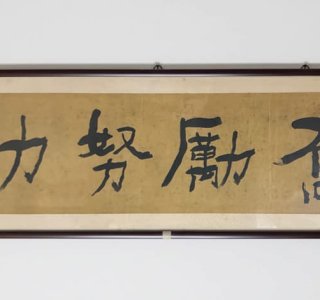 勵努力